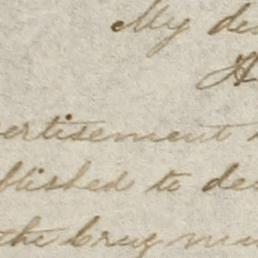 My de
A
ertisement
blished to de
the brug